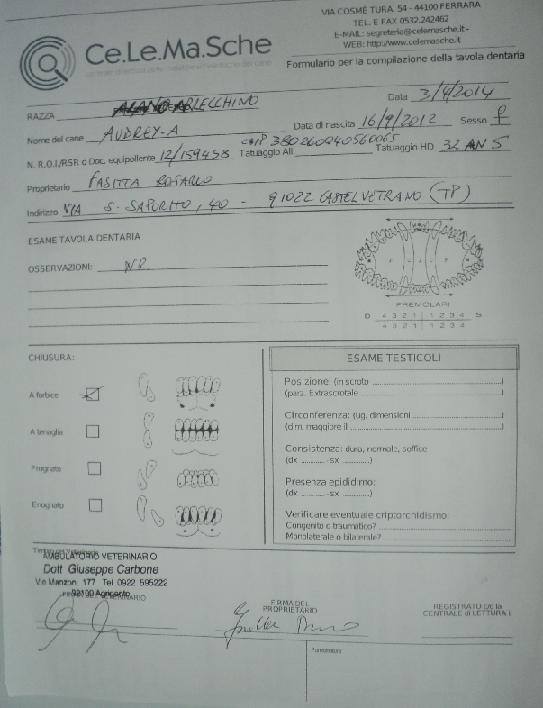 VIA COSMÈ TURA, 54 - 44100 FERRARA
TEL. E FAX 0532.242462
E-MAIL: segreteria@celemasche.it -
WEB: http://www.celemasche.it
Ce.Le.Ma.Sche
Formulario per la compilazione della tavola dentaria
Data 3/4/2014
RAZZA ARLECCHINO
Nome del cane AUDREY-A Data di nascita 16/9/2012 Sesso F
N. R.O.I/RSR o Doc. equipollente 12/159455 Tatuaggio All CHIP 380260040560065 Tatuaggio HD
Proprietario
Indirizzo VIA S. SAPORITO, 40 - 91022 CASTELVETRANO (TP)
ESAME TAVOLA DENTARIA
OSSERVAZIONI:
PREMOLARI
D 4 3 2 1 1 2 3 4 S
4 3 2 1 1 2 3 4
CHIUSURA:
A forbice
A tenaglia
Prognato
Enognato
ESAME TESTICOLI
Posizione: (in scroto
(para. Extrascrotale
Circonferenza: (ug. dimensioni
(dim. maggiore il
Consistenza: dura, normale, soffice
(dx -sx )
Presenza epididimo:
(dx -sx )
Verificare eventuale criptorchidismo:
Congenito o traumatico?
Monolaterale o bilaterale?
AMBULATORIO VETERINARIO
Dott. Giuseppe Carbone
Via Manzoni, 177 Tel 0922 596222
92100 Agrigento
FIRMA DEL
PROPRIETARIO
REGISTRATO DE la
CENTRALE di LETTURA i